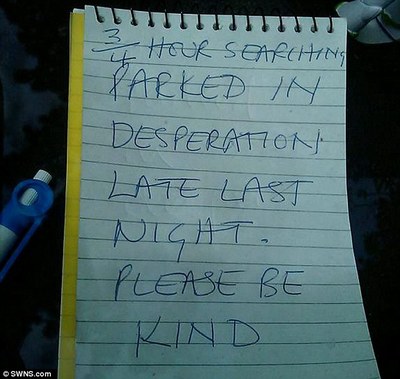 3/4 HOUR SEARCHING
PARKED IN
DESPERATION.
LATE LAST
NIGHT.
PLEASE BE
KIND
© SWNS.com